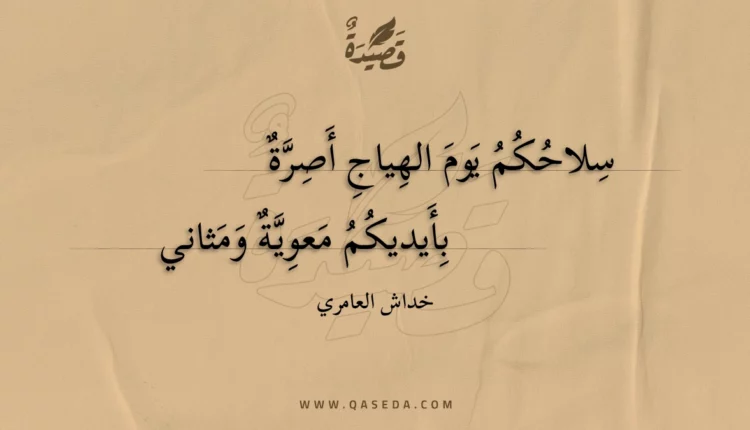 قَصِيدَةٌ
سِلاحُكُمُ يَومَ الهِياجِ أَصِرَّةٌ
بِأَيديكُمُ مَعوِيَّةٌ وَمَثاني
خداش العامري
WWW.QASEDA.COM